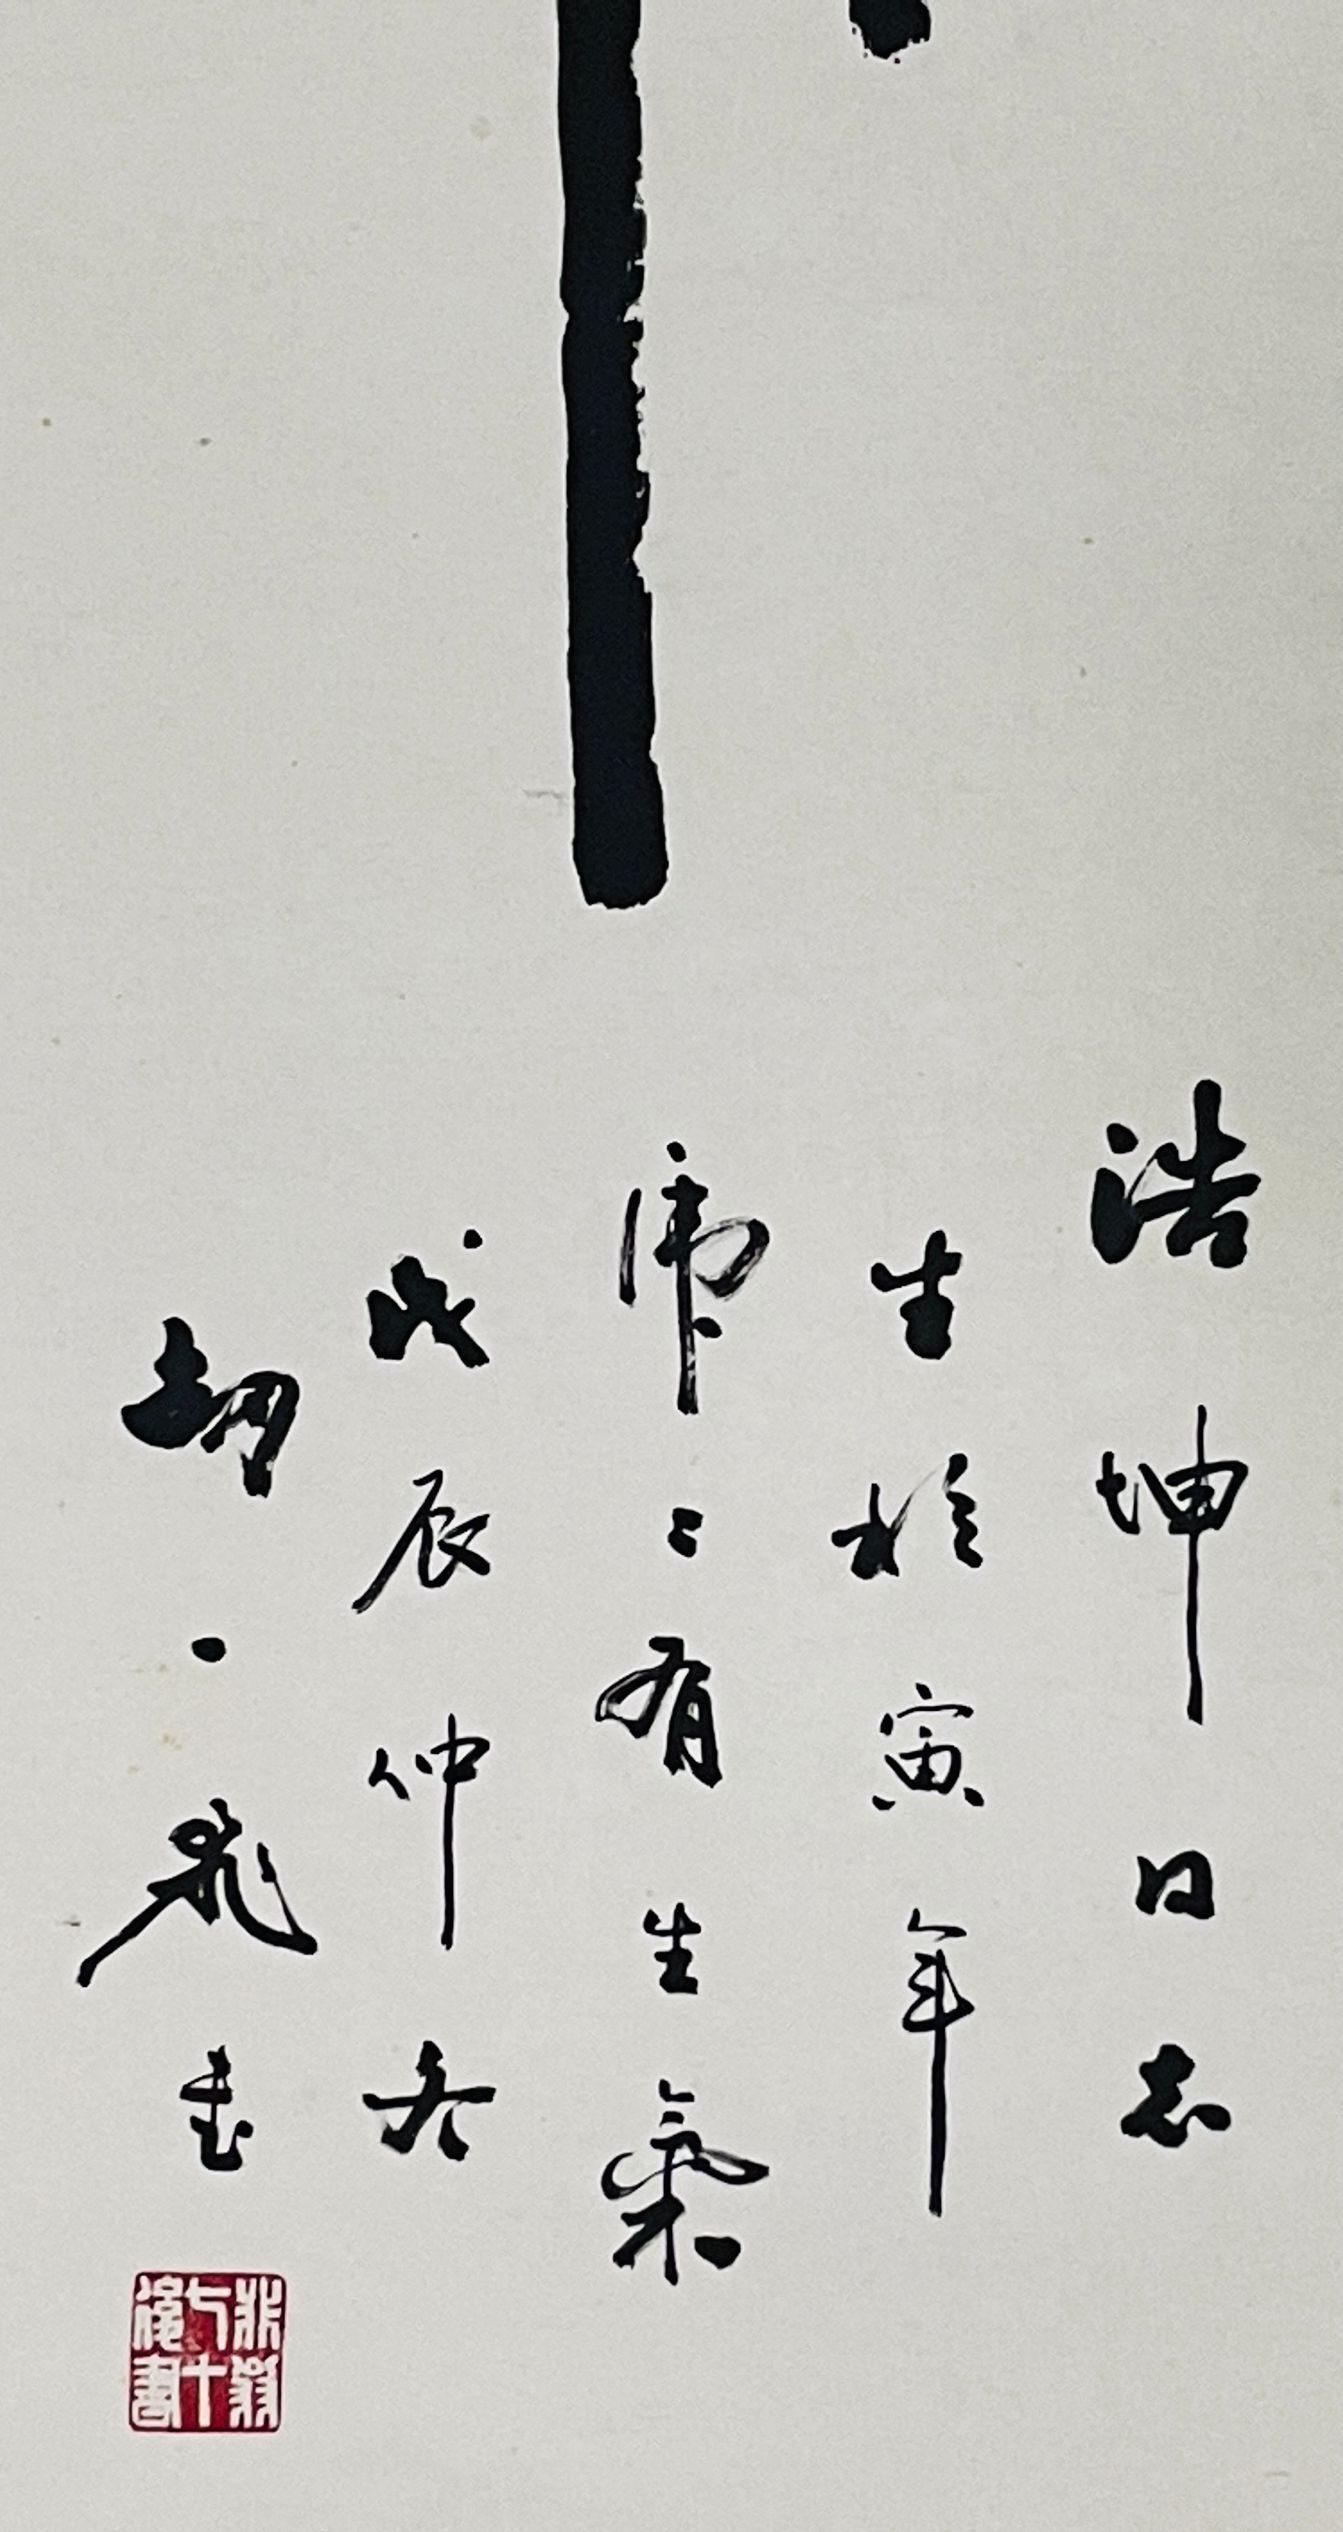 浩坤同志
生於寅年
虎虎有生氣
戊辰仲冬
胡一飛書
非翁七十後書